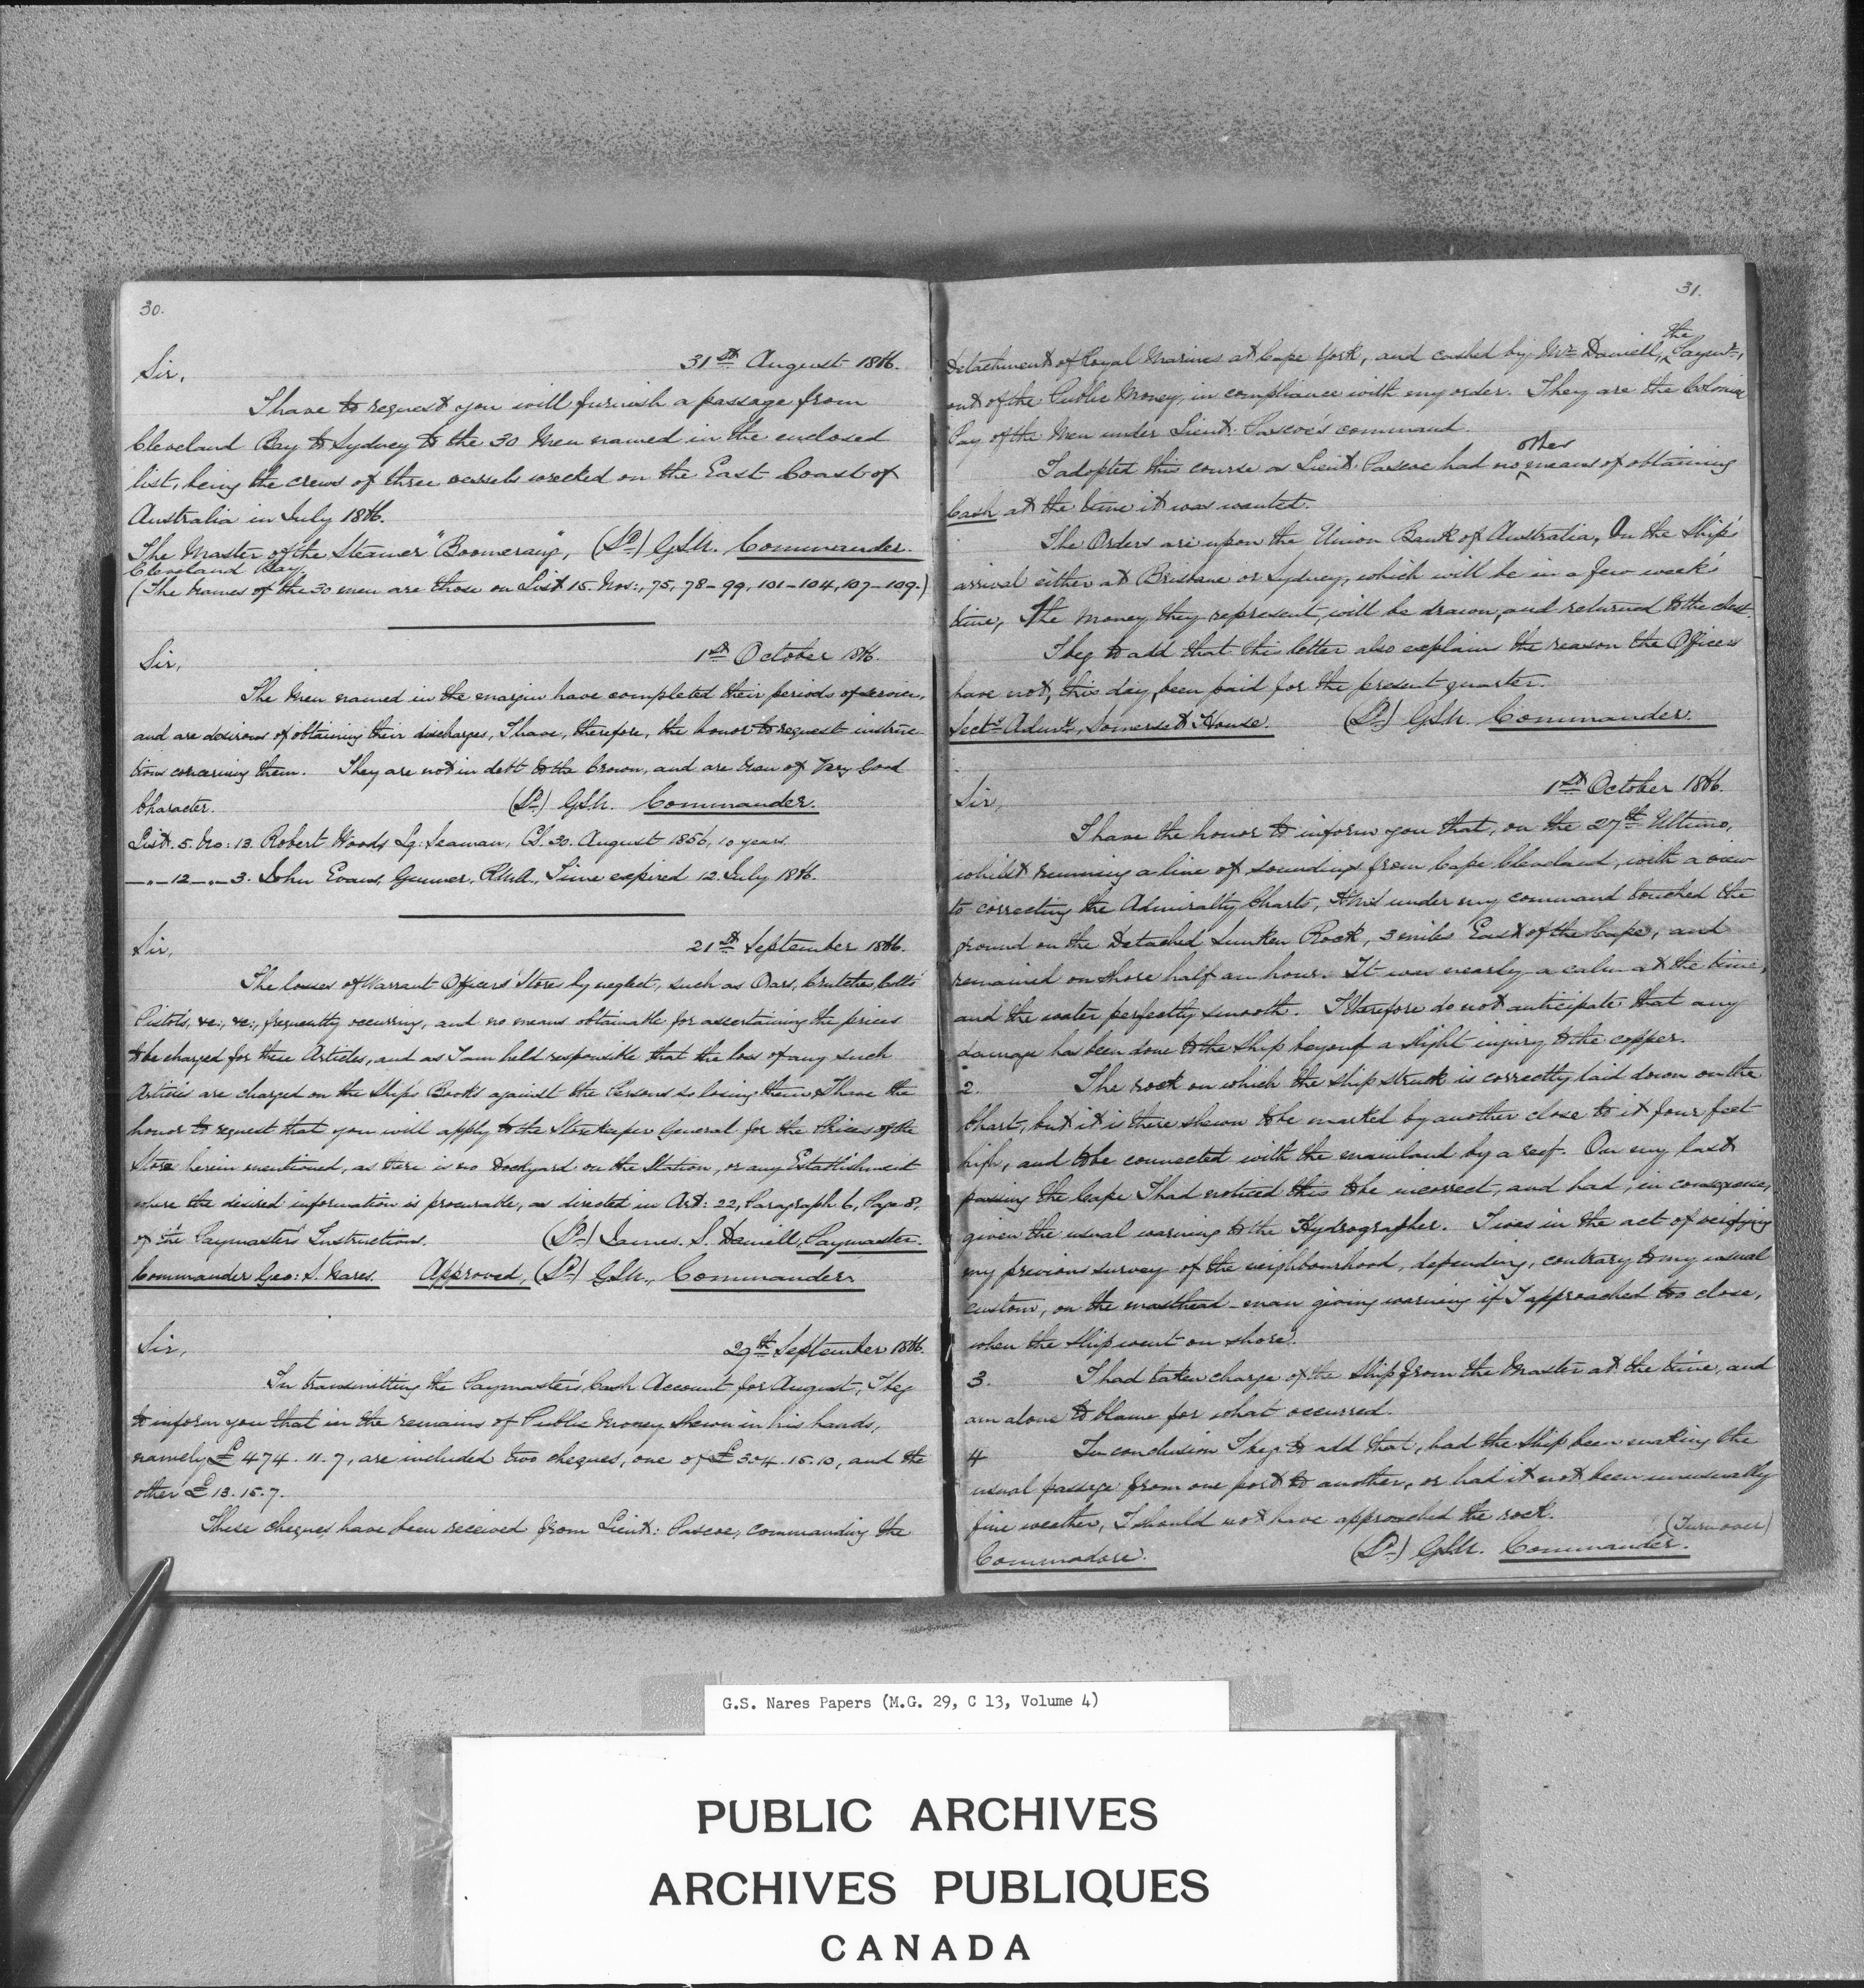 30.
31st August 1866.
Sir,
I have to request you will furnish a passage from
Cleveland Bay to Sydney to the 30 Men named in the enclosed
list, being the crews of three vessels wrecked on the East Coast of
Australia in July 1866.
The Master of the Steamer "Boomerang", (Sd) GSN. Commander.
Cleveland Bay.
(The names of the 30 men are those on List 15. Nos:, 75, 78-99, 101-104, 107-109.)
1st October 1866.
Sir,
The Men named in the margin have completed their periods of service,
and are desirous of obtaining their discharges, I have, therefore, the honor to request instruc-
tions concerning them. They are not in debt to the Crown, and are men of Very Good
Character. (Sd) GSN. Commander.
List. 5. No: 13. Robert Woods, Lg: Seaman, CS. 30. August 1856, 10 years.
—"—12—"—3. John Evans, Gunner, R.M.A., Time expired 12. July 1866.
Sir, 21st September 1866.
The losses of Warrant Officers' Stores by neglect, such as Oars, Crutches, Colts'
Pistols, &c:, &c:, frequently occurring, and no means obtainable for ascertaining the prices
to be charged for these Articles, and as I am held responsible that the loss of any such
Articles are charged on the Ships Books against the Persons so losing them, I have the
honor to request that you will apply to the Storekeeper General for the Prices of the
Stores herein mentioned, as there is no Dockyard on the Station, or any Establishment
where the desired information is procurable, as directed in Art: 22, Paragraph 6, Page 8,
of the Paymasters' Instructions. (Sd) James. S. Daniell, Paymaster.
Commander Geo: S. Nares. Approved, (Sd) GSN., Commander
Sir, 29th September 1866.
In transmitting the Paymaster's, Cash Account for August, I beg
to inform you that in the remains of Public Money shewn in his hands,
namely £474. 11. 7, are included two cheques, one of £304. 15. 10, and the
other £13. 15. 7.
These cheques have been received from Lieut: Pascoe, commanding the
31.
Detachment of Royal Marines at Cape York, and cashed by Mr Daniell, the Paymr,
out of the Public Money, in compliance with my order. They are the Colonial
Pay of the Men under Lieut: Pascoe's command.
I adopted this course as Lieut: Pascoe had no other means of obtaining
Cash at the time it was wanted.
The Orders are upon the Union Bank of Australia, On the Ship's
arrival either at Brisbane or Sydney, which will be in a few week's
time, the money they represent, will be drawn, and returned to the chest.
I beg to add that this letter also explains the reason the Officers
have not, this day, been paid for the present quarter.
Secty Admty, Somerset House. (Sd) GSN. Commander.
1st October 1866.
Sir,
I have the honor to inform you that, on the 27th Ultimo,
whilst running a line of soundings from Cape Cleveland, with a view
to correcting the Admiralty Charts, HMS under my command touched the
ground on the Detached Sunken Rock, 3 miles East of the Cape, and
remained on shore half an hour. It was nearly a calm at the time,
and the water perfectly smooth. I therefore do not anticipate that any
damage has been done to the Ship beyond a slight injury to the copper.
2. The rock on which the ship struck is correctly laid down on the
Chart, but it is there shewn to be marked by another close to it four feet
high, and to be connected with the mainland by a reef. On my last
passing the Cape I had noticed this to be incorrect, and had, in consequence,
given the usual warning to the Hydrographer. I was in the act of verifying
my previous survey of the neighbourhood, depending, contrary to my usual
custom, on the masthead-man giving warning if I approached too close,
when the ship went on shore.
3. I had taken charge of the ship from the Master at the time, and
am alone to blame for what occurred.
4 In conclusion I beg to add that, had the Ship been making the
usual passage from one port to another, or had it not been unusually
fine weather, I should not have approached the rock.
(Turn over)
Commodore. (Sd) GSN. Commander.
G.S. Nares Papers (M.G. 29, C 13, Volume 4)
PUBLIC ARCHIVES
ARCHIVES PUBLIQUES
CANADA